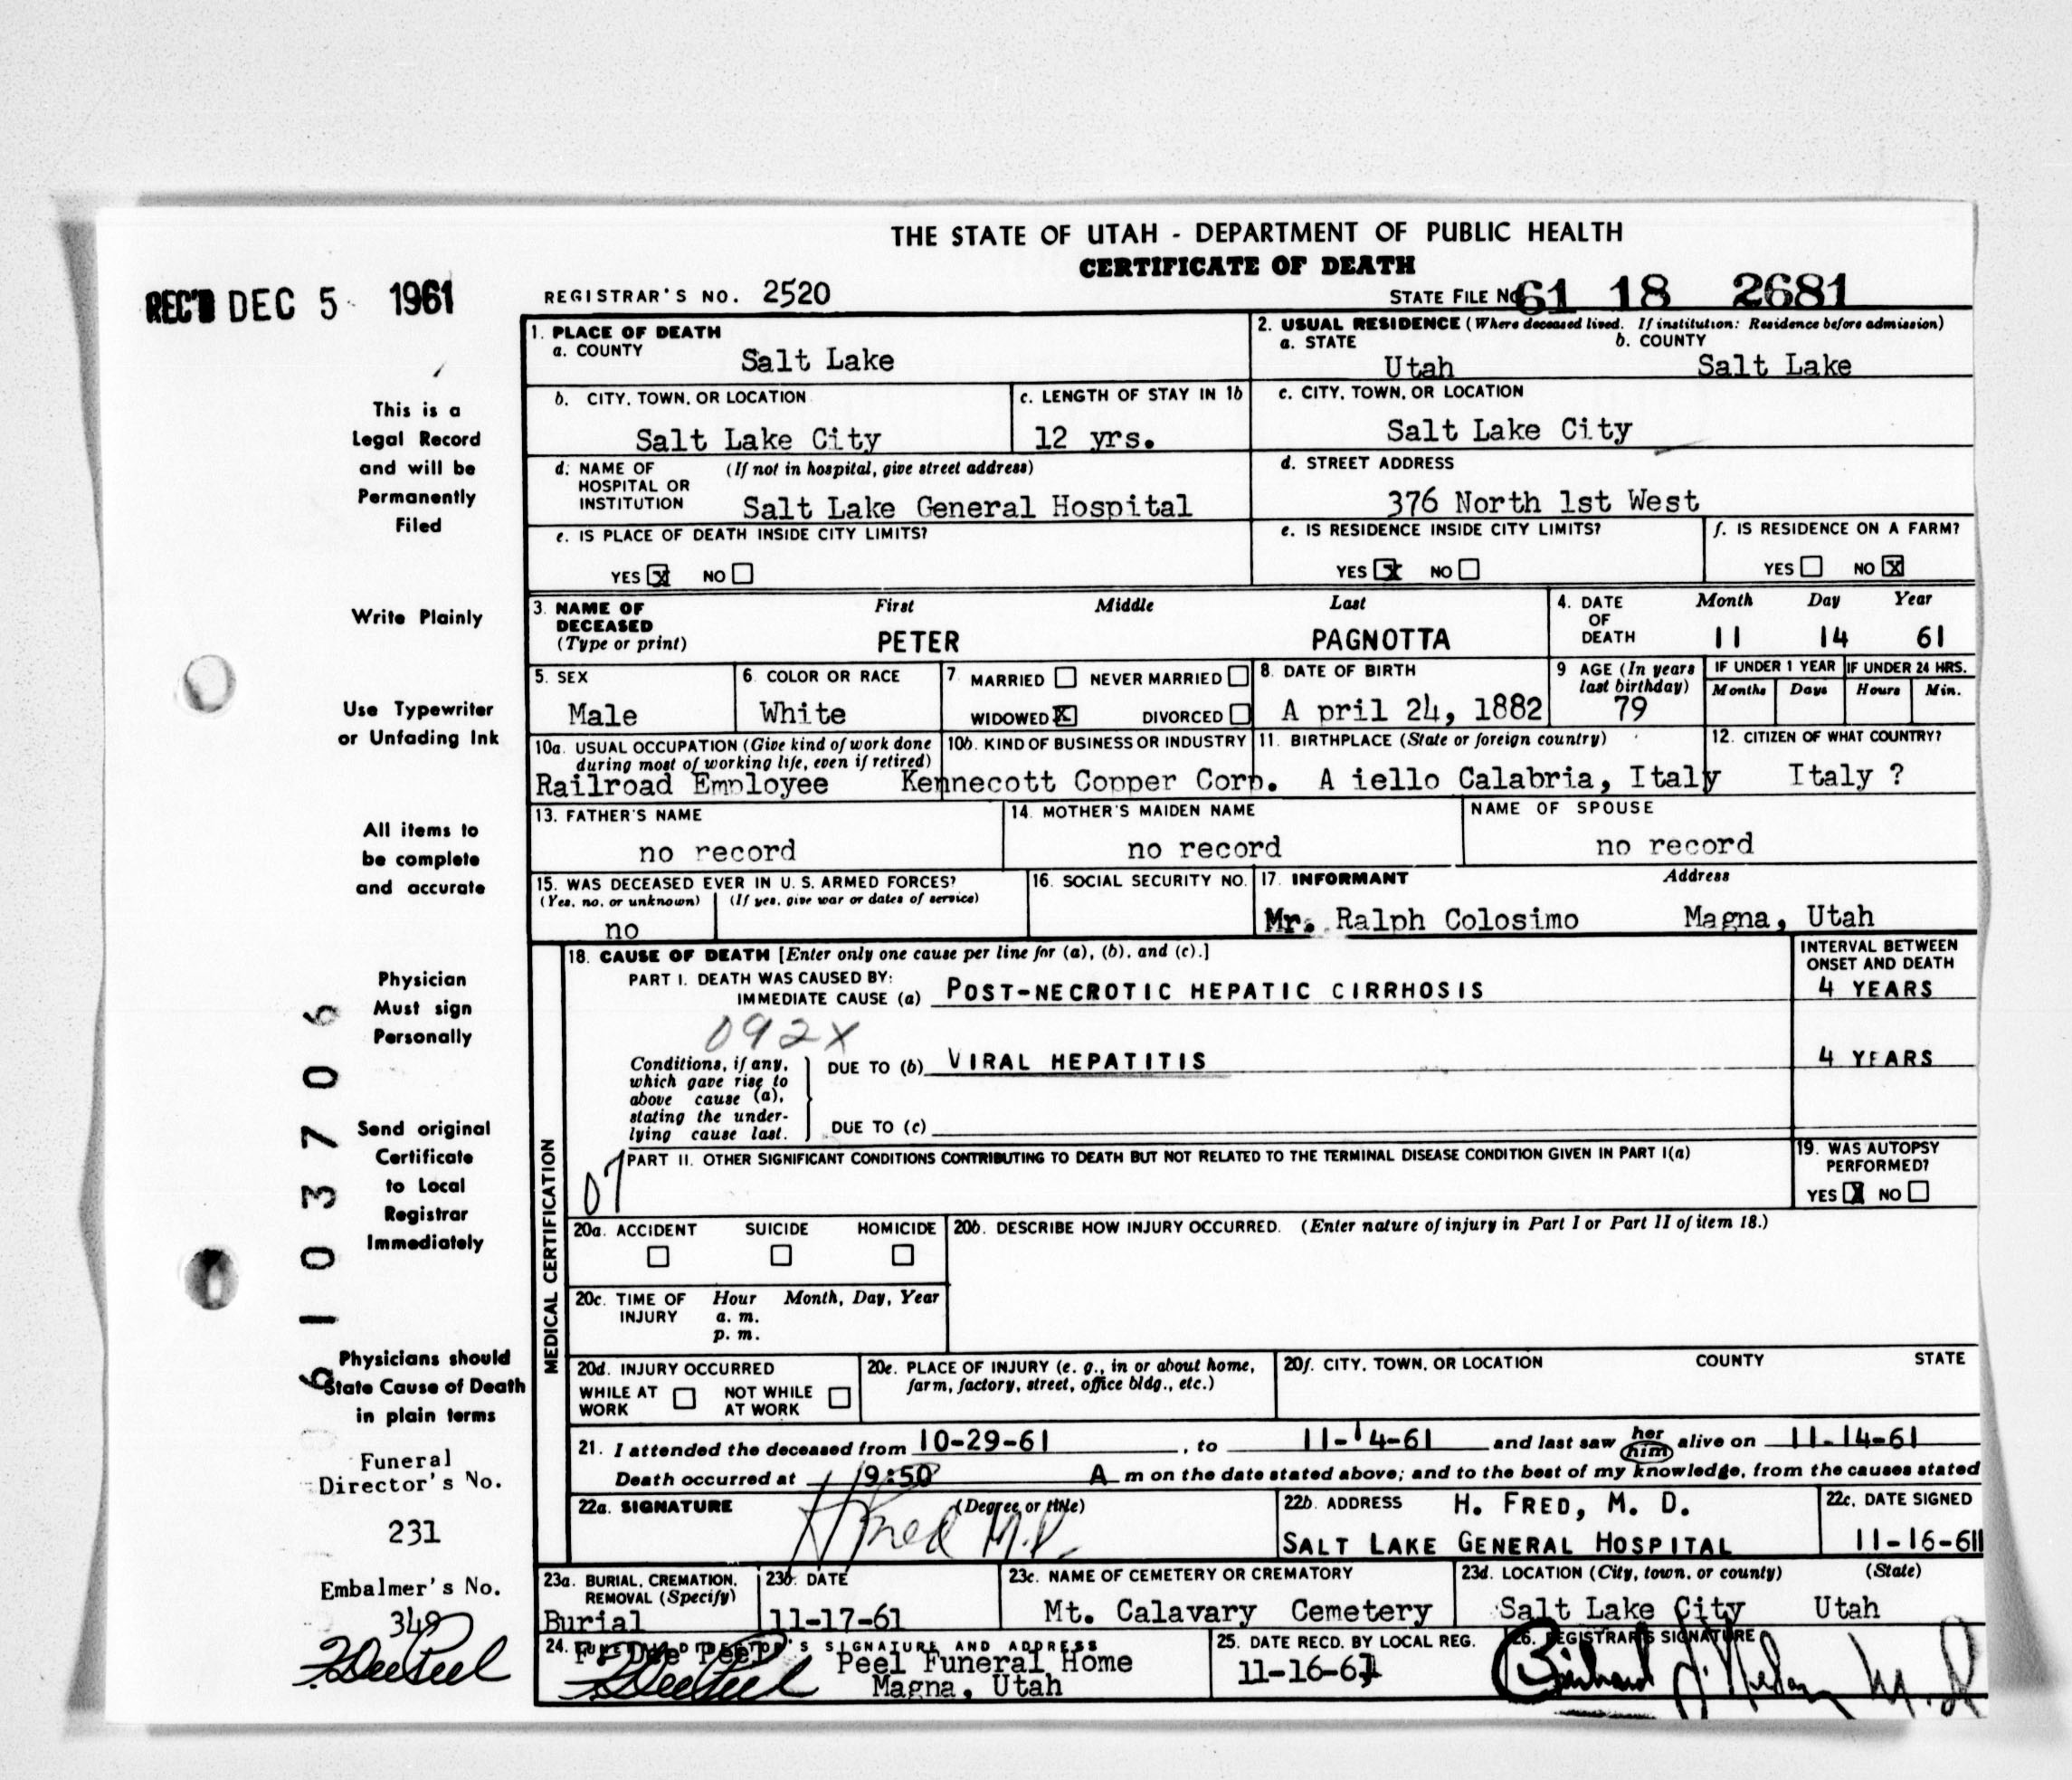 THE STATE OF UTAH - DEPARTMENT OF PUBLIC HEALTH
CERTIFICATE OF DEATH
REC'D DEC 5 1961
REGISTRAR'S NO. 2520
STATE FILE NO. 61 18 2681
1. PLACE OF DEATH
a. COUNTY Salt Lake
2. USUAL RESIDENCE (Where deceased lived. If institution: Residence before admission)
a. STATE Utah b. COUNTY Salt Lake
b. CITY, TOWN, OR LOCATION Salt Lake City
c. LENGTH OF STAY IN 1b 12 yrs.
c. CITY, TOWN, OR LOCATION Salt Lake City
d. NAME OF HOSPITAL OR INSTITUTION (If not in hospital, give street address) Salt Lake General Hospital
d. STREET ADDRESS 376 North 1st West
e. IS PLACE OF DEATH INSIDE CITY LIMITS?
YES X NO
e. IS RESIDENCE INSIDE CITY LIMITS?
YES X NO
f. IS RESIDENCE ON A FARM?
YES NO X
3. NAME OF DECEASED (Type or print)
First Middle Last
PETER PAGNOTTA
4. DATE OF DEATH
Month Day Year
11 14 61
5. SEX Male
6. COLOR OR RACE White
7. MARRIED NEVER MARRIED
WIDOWED X DIVORCED
8. DATE OF BIRTH A pril 24, 1882
9 AGE (In years last birthday) 79
IF UNDER 1 YEAR IF UNDER 24 HRS.
Months Days Hours Min.
10a. USUAL OCCUPATION (Give kind of work done during most of working life, even if retired)
Railroad Employee
10b. KIND OF BUSINESS OR INDUSTRY
Kennecott Copper Corp.
11. BIRTHPLACE (State or foreign country)
A iello Calabria, Italy
12. CITIZEN OF WHAT COUNTRY?
Italy ?
13. FATHER'S NAME
no record
14. MOTHER'S MAIDEN NAME
no record
NAME OF SPOUSE
no record
15. WAS DECEASED EVER IN U. S. ARMED FORCES?
(Yes, no, or unknown) (If yes, give war or dates of service)
no
16. SOCIAL SECURITY NO.
17. INFORMANT Address
Mr. Ralph Colosimo Magna, Utah
MEDICAL CERTIFICATION
18. CAUSE OF DEATH [Enter only one cause per line for (a), (b), and (c).]
INTERVAL BETWEEN ONSET AND DEATH
PART I. DEATH WAS CAUSED BY:
IMMEDIATE CAUSE (a) POST-NECROTIC HEPATIC CIRRHOSIS 4 YEARS
092X
Conditions, if any, which gave rise to above cause (a), stating the underlying cause last.
DUE TO (b) VIRAL HEPATITIS 4 YEARS
DUE TO (c)
07
PART II. OTHER SIGNIFICANT CONDITIONS CONTRIBUTING TO DEATH BUT NOT RELATED TO THE TERMINAL DISEASE CONDITION GIVEN IN PART I(a)
19. WAS AUTOPSY PERFORMED?
YES X NO
20a. ACCIDENT SUICIDE HOMICIDE
20b. DESCRIBE HOW INJURY OCCURRED. (Enter nature of injury in Part I or Part II of item 18.)
20c. TIME OF INJURY Hour Month, Day, Year
a. m.
p. m.
20d. INJURY OCCURRED
WHILE AT WORK NOT WHILE AT WORK
20e. PLACE OF INJURY (e. g., in or about home, farm, factory, street, office bldg., etc.)
20f. CITY, TOWN, OR LOCATION COUNTY STATE
21. I attended the deceased from 10-29-61, to 11-14-61 and last saw her him alive on 11-14-61
Death occurred at 9:50 A m on the date stated above; and to the best of my knowledge, from the causes stated
22a. SIGNATURE (Degree or title)
H Fred M.D.
22b. ADDRESS H. FRED, M. D.
SALT LAKE GENERAL HOSPITAL
22c. DATE SIGNED
11-16-61
23a. BURIAL, CREMATION, REMOVAL (Specify)
Burial
23b. DATE
11-17-61
23c. NAME OF CEMETERY OR CREMATORY
Mt. Calavary Cemetery
23d. LOCATION (City, town, or county) (State)
Salt Lake City Utah
24. FUNERAL DIRECTOR'S SIGNATURE AND ADDRESS
F. Dee Peel
F. Dee Peel
Peel Funeral Home
Magna, Utah
25. DATE RECD. BY LOCAL REG.
11-16-61
26. REGISTRAR'S SIGNATURE
This is a
Legal Record
and will be
Permanently
Filed
Write Plainly
Use Typewriter
or Unfading Ink
All items to
be complete
and accurate
Physician
Must sign
Personally
Send original
Certificate
to Local
Registrar
Immediately
Physicians should
State Cause of Death
in plain terms
6103706
Funeral
Director's No.
231
Embalmer's No.
348
F. Dee Peel